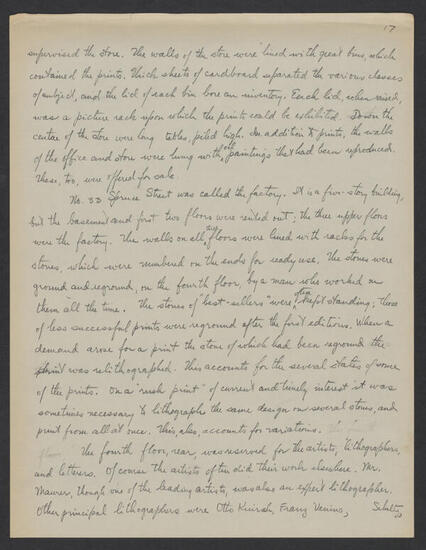 17
supervised the store. The walls of the store were lined with great bins, which
contained the prints. Thick sheets of cardboard separated the various classes
of subject, and the lid of each bin bore an inventory. Each lid, when raised,
was a picture rack upon which the prints could be exhibited. Down the
center of the store were long tables, piled high. In addition to prints, the walls
of the office and store were hung with oil paintings that had been reproduced.
These, too, were offered for sale.
No. 33 Spruce Street was called the factory. It is a five-story building,
but the basement and first two floors were rented out; the three upper floors
were the factory. The walls on all floors were lined with racks for the
stones, which were numbered on the ends for ready use. The stones were
ground and reground, on the fourth floor, by a man who worked on
them all the time. The stones of "best-sellers" were often kept standing; those
of less successful prints were reground after the first editions. When a
demand arose for a print the stone of which had been reground the
print was relithographed. This accounts for the several states of some
of the prints. On a "rush print" of current and timely interest it was
sometimes necessary to lithograph the same design on several stones, and
print from all at once. This, also, accounts for variations.
The fourth floor, rear, was reserved for the artists, lithographers,
and letterers. Of course the artists often did their work elsewhere. Mr.
Maurer, though one of the leading artists, was also an expert lithographer.
Other principal lithographers were Otto Knirsch, Franz Venino,